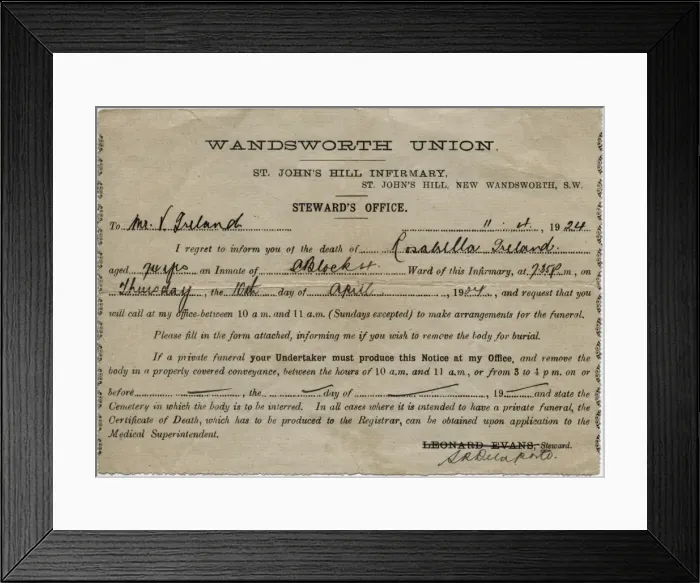 WANDSWORTH UNION.
ST. JOHN'S HILL INFIRMARY,
ST. JOHN'S HILL, NEW WANDSWORTH, S.W.
STEWARD'S OFFICE.
To Mr. V. Ireland 11 . 4 , 1924
I regret to inform you of the death of Rosabella Ireland
aged 74 yrs an Inmate of Ward of this Infirmary, at 7.35 p.m., on
Thursday, the 10th day of April, 1924, and request that you
will call at my office between 10 a.m. and 11 a.m. (Sundays excepted) to make arrangements for the funeral.
Please fill in the form attached, informing me if you wish to remove the body for burial.
If a private funeral your Undertaker must produce this Notice at my Office, and remove the
body in a properly covered conveyance, between the hours of 10 a.m. and 11 a.m., or from 3 to 4 p.m. on or
before , the day of , 19 and state the
Cemetery in which the body is to be interred. In all cases where it is intended to have a private funeral, the
Certificate of Death, which has to be produced to the Registrar, can be obtained upon application to the
Medical Superintendent.
LEONARD EVANS, Steward.